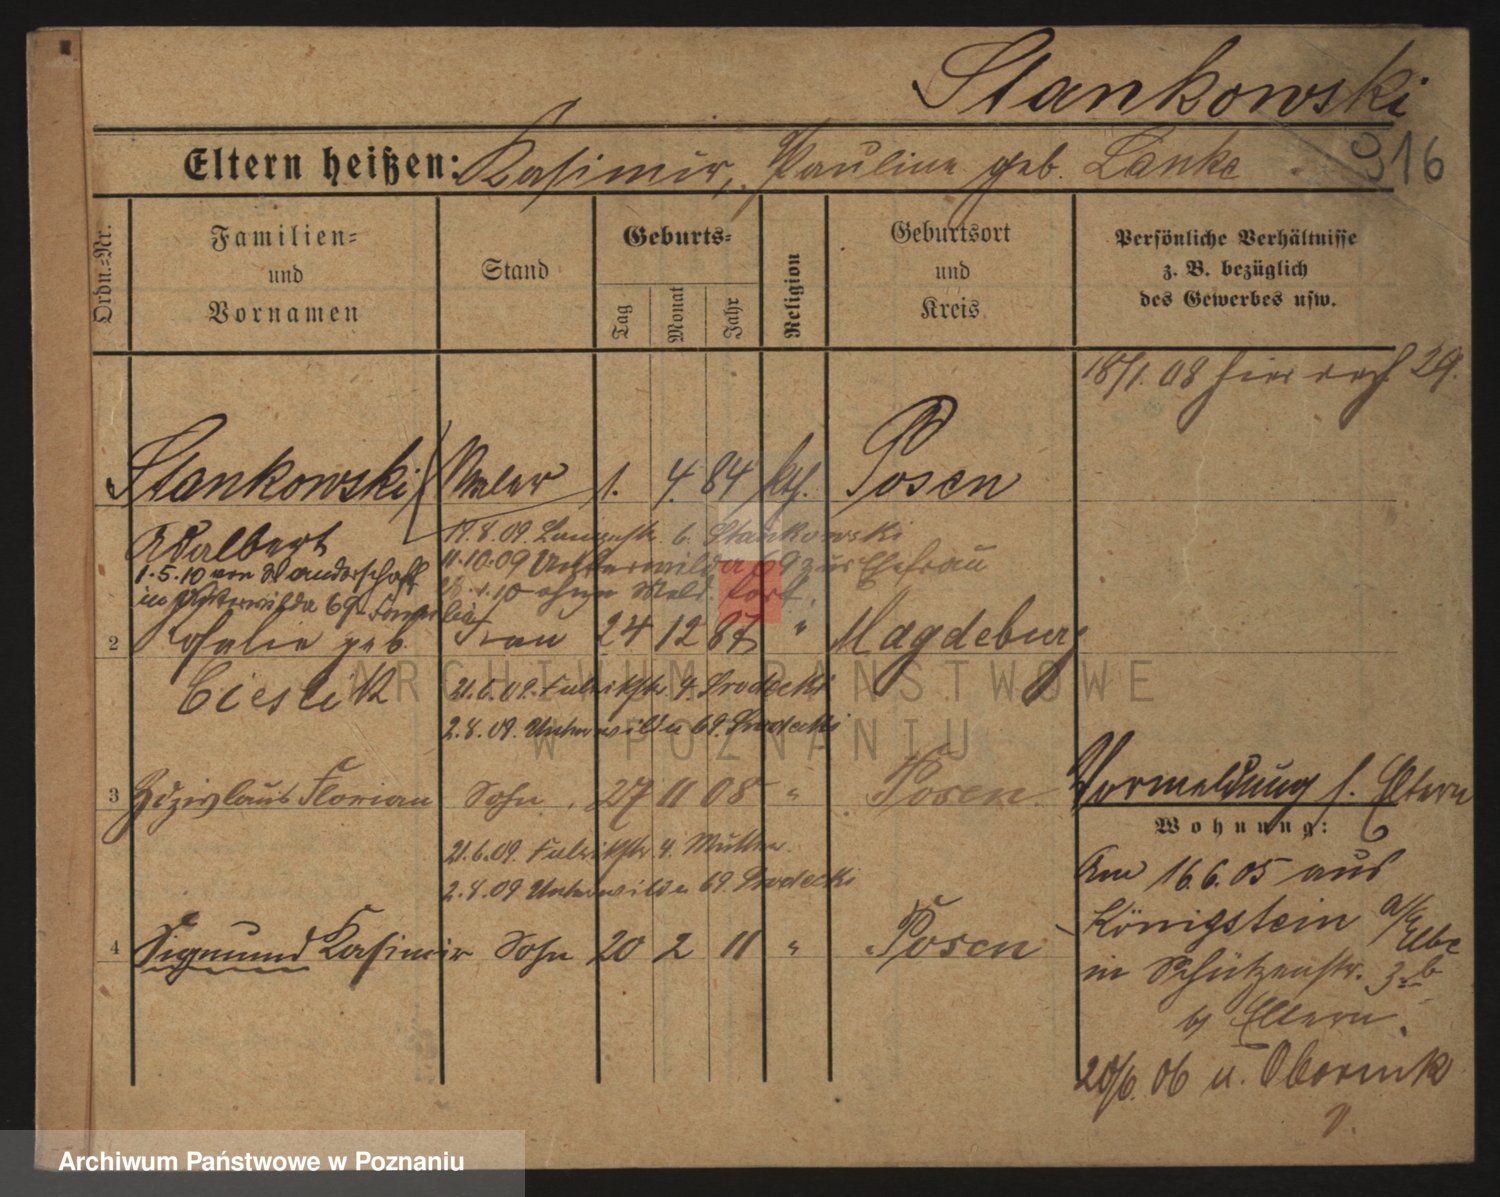 Stankowski
Eltern heißen: Kasimir, Pauline geb. Lanke
316
Ordn.-Nr.
Familien-
und
Vornamen
Stand
Geburts-
Tag
Monat
Jahr
Religion
Geburtsort
und
Kreis
Persönliche Verhältnisse
z. B. bezüglich
des Gewerbes usw.
18/1.08 hier 29.
Stankowski Maler 1. 4. 84 kth. Posen
Adalbert
17.8.09 6. Stankowski
11.10.09 Unterwilda 69 zur Ehefrau
1.5.10 von Wanderschaft
10 ohne Meld. fort.
in Unterwilda 69 Familie
2 Rosalie geb. Frau 24 12 87 " Magdeburg
Cieslik
21.6.09. Fabrikstr. 4. Srodecki
2.8.09. Unterwilda 69. Srodecki
3 Florian Sohn 27 11 08 " Posen
Vormeldung s. Eltern
Wohnung:
21.6.09. Fabrikstr. 4. Mutter.
2.8.09 Unterwilda 69. Srodecki
Am 16.6.05 aus
Königstein a/Elbe
4 Sigmund Kasimir Sohn 20 2 11 " Posen
in Schützenstr. 3b
b/ Eltern.
20/6.06 n. Obornik
ARCHIWUM PAŃSTWOWE
W POZNANIU
Archiwum Państwowe w Poznaniu